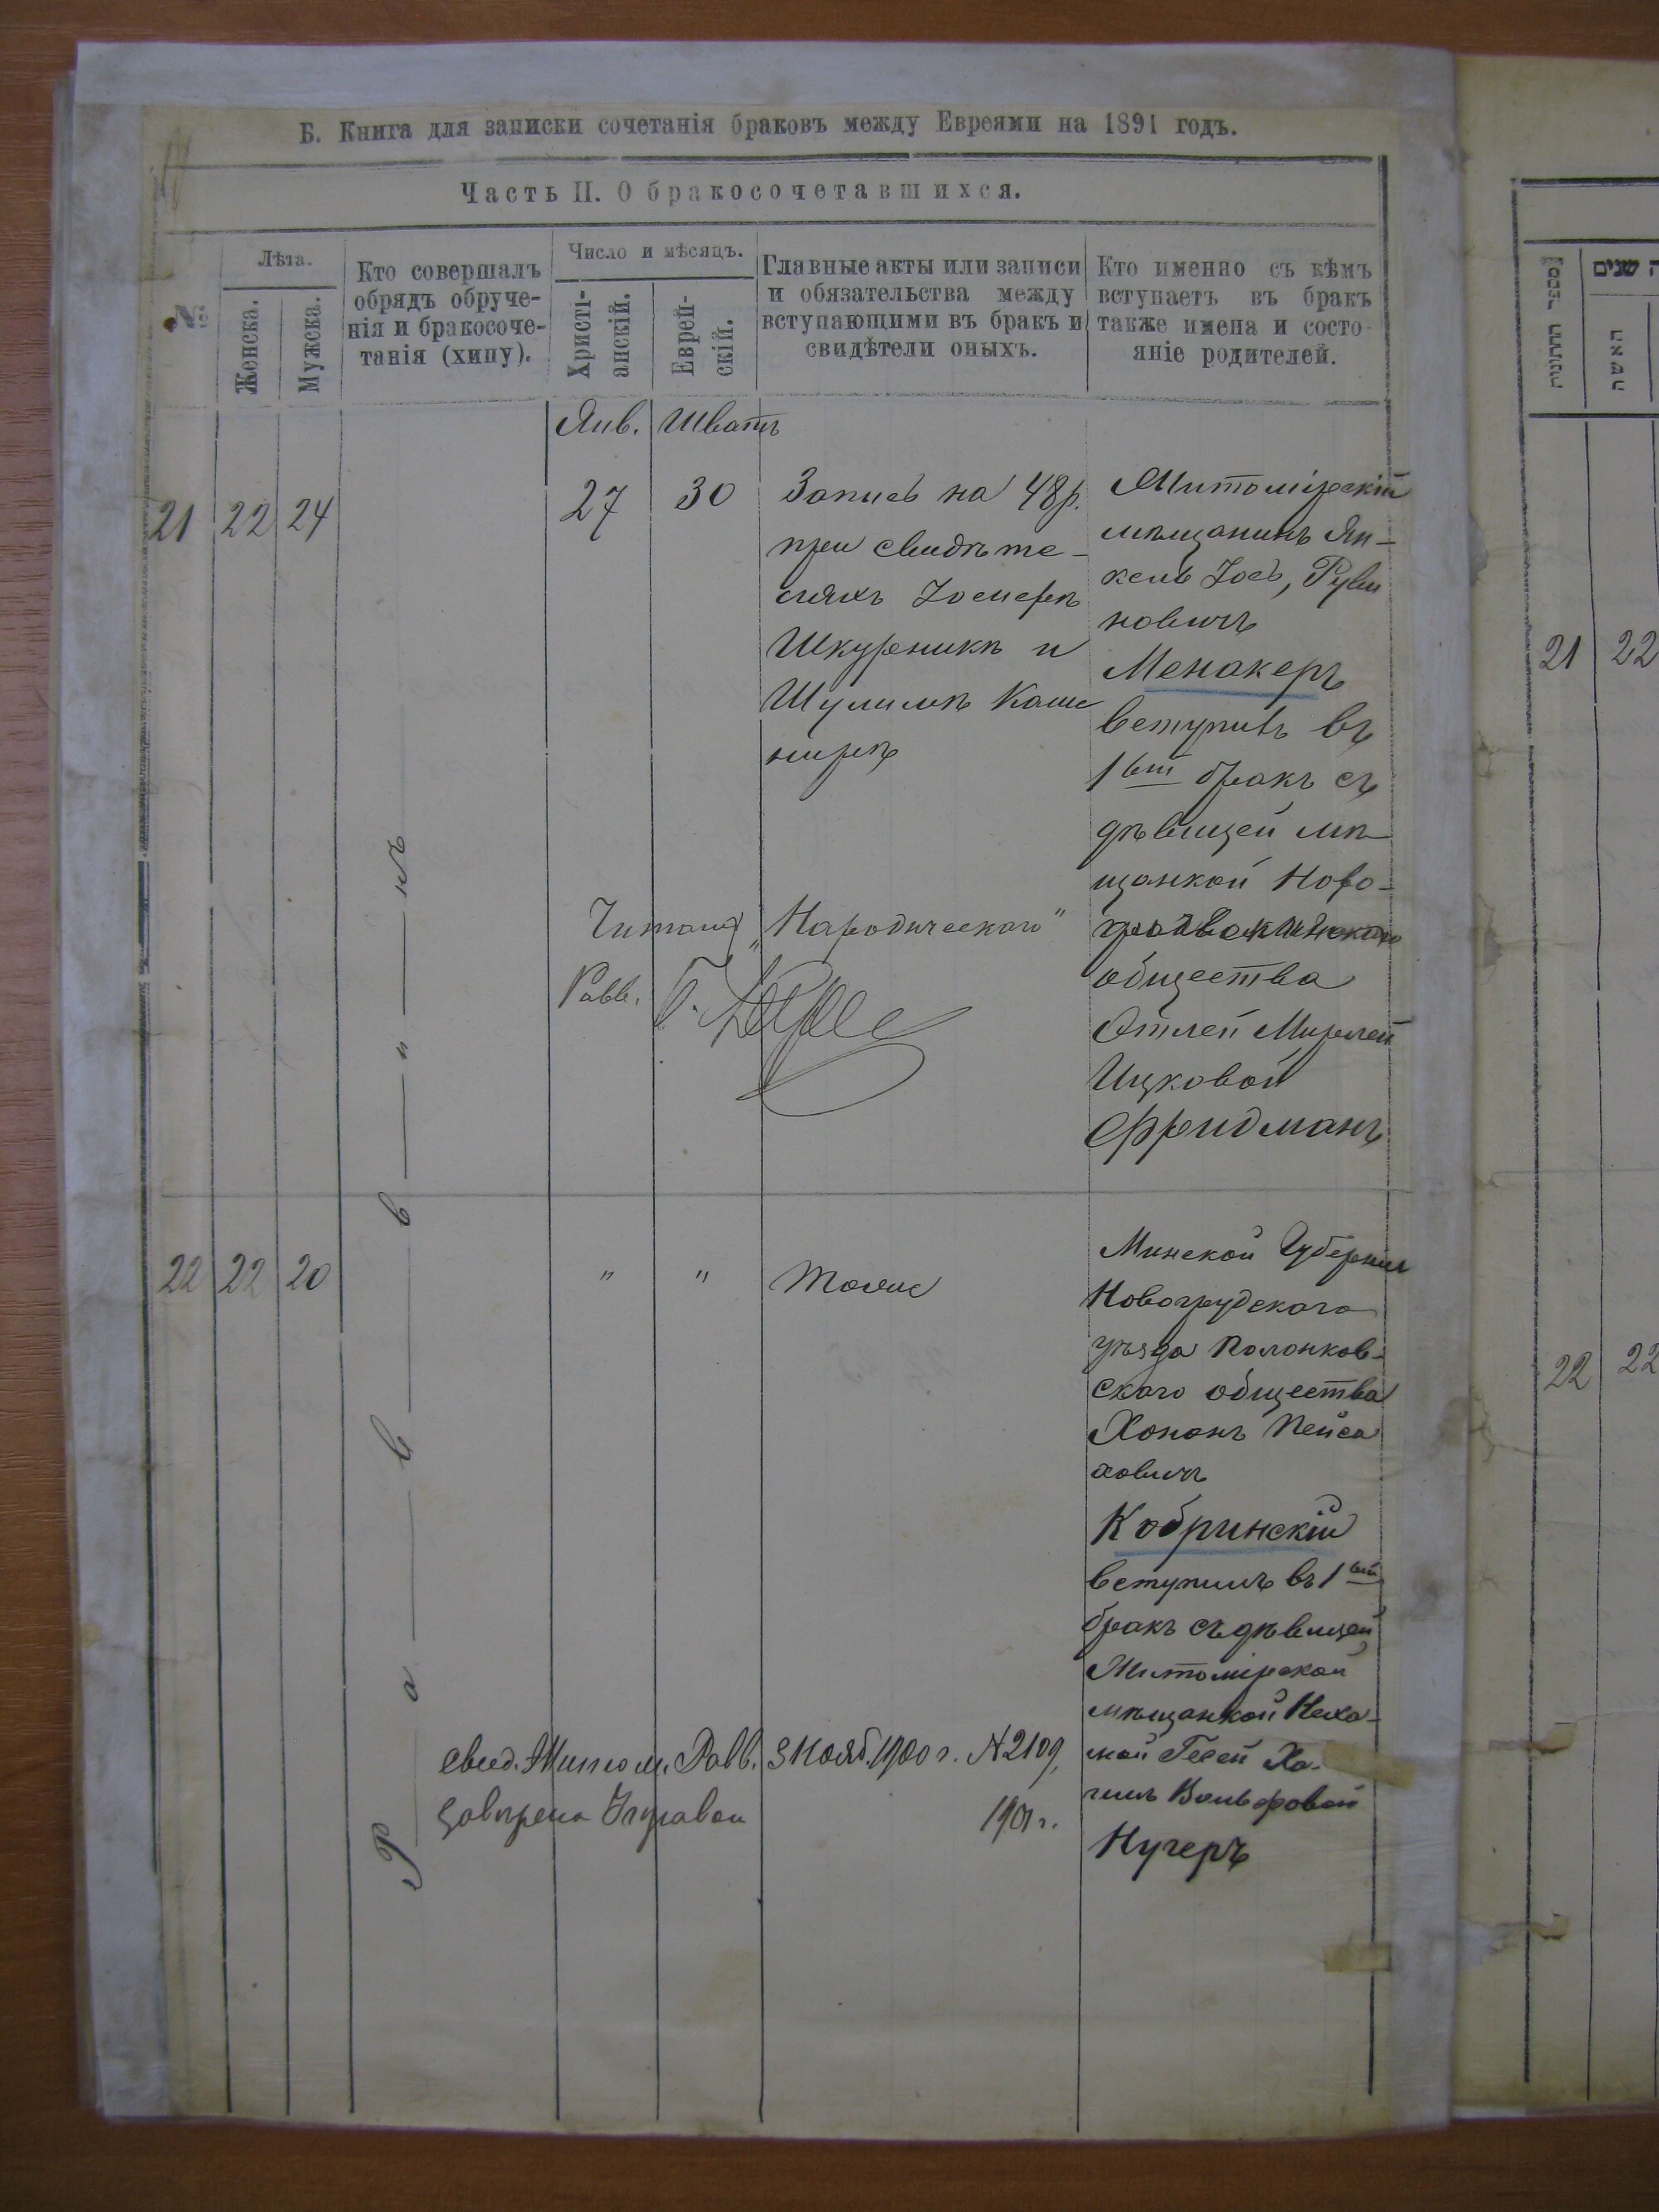 Б. Книга для записки сочетанія браковъ между Евреями на 1891 годъ.
Часть II. О бракосочетавшихся.
№
Лѣта.
Женска.
Мужска.
Кто совершалъ
обрядъ обруче-
нія и бракосоче-
танія (хипу).
Число и мѣсяцъ.
Христі-
анскій.
Еврей-
скій.
Главные акты или записи
и обязательства между
вступающими въ бракъ и
свидѣтели оныхъ.
Кто именно съ кѣмъ
вступаетъ въ бракъ
также имена и состо-
яніе родителей.
Янв. Шватъ
21 22 24
27 30
Запись на 48 р.
при свидѣте-
ляхъ Іосифѣ
Шкурникѣ и
Шулимѣ Каш
нирѣ
Житомірскій
мѣщанинъ Ян-
кель Іось, Руви
новичъ
Менакеръ
вступилъ въ
1ый бракъ съ
дѣвицей мѣ
щанкой
общества
Этлей Мирлей
Ицковой
Фридманъ
Читано „Народическаго"
Равв.
Раввинъ
22 22 20
" "
Тоже
Минской Губерніи
Новогрудскаго
уѣзда Полонков-
скаго общества
Хононъ Пейса
ховичъ
Кобринскій
вступилъ въ 1ый
бракъ съ дѣвицей
Житомірской
мѣщанкой Неха-
мой Гесей Ха-
Вольфовой
Кучеръ
Свид. Житом. Равв. 3 Нояб. 1900 г. № 2109,
завѣрена Управой 1901 г.
מספר החתונה
שנים
האשה
21 22
22 22